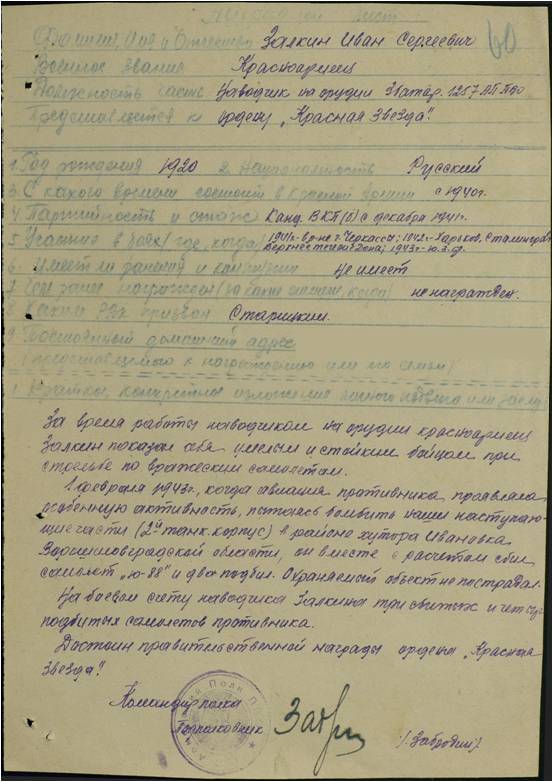 Наградной лист
Фамилия, Имя и Отчество Залкин Иван Сергеевич 60
Военное звание Красноармеец
Должность часть Наводчик на орудии 3 батар. 1257 АП ПВО
Представляется к ордену „Красная Звезда".
1. Год рождения 1920 2. Национальность Русский
3. С какого времени состоит в Красной Армии с 1940г.
4. Партийность и стаж Канд. ВКП(б) с декабря 1941г.
5. Участие в боях (где, когда) 1941г. Черкассы; 1942г. Харьков, Сталинград
1943г. Ю.З.Ф.
6. Имеет ли ранения и контузии Не имеет
7. Чем ранее награжден не награжден.
8. Каким РВК призван Старицким.
9. Постоянный домашний адрес
(представляемого к награждению или его семьи)
Краткое, конкретное изложение личного подвига или заслуг
За время работы наводчиком на орудии красноармеец
Залкин показал себя умелым и стойким бойцом при
стрельбе по вражеским самолетам.
1 февраля 1943г., когда авиация противника проявляла
особенную активность, пытаясь бомбить наши наступаю-
щие части (2й танк. корпус) в районе хутора Ивановка
Ворошиловградской области, он вместе с расчетом сбил
самолет „Ю-88" и два подбил. Охраняемый объект не пострадал.
На боевом счету наводчика Залкина три сбитых и четыре
подбитых самолетов противника.
Достоин правительственной награды ордена „Красная
Звезда".
Командир полка
Подполковник
/Забродин/